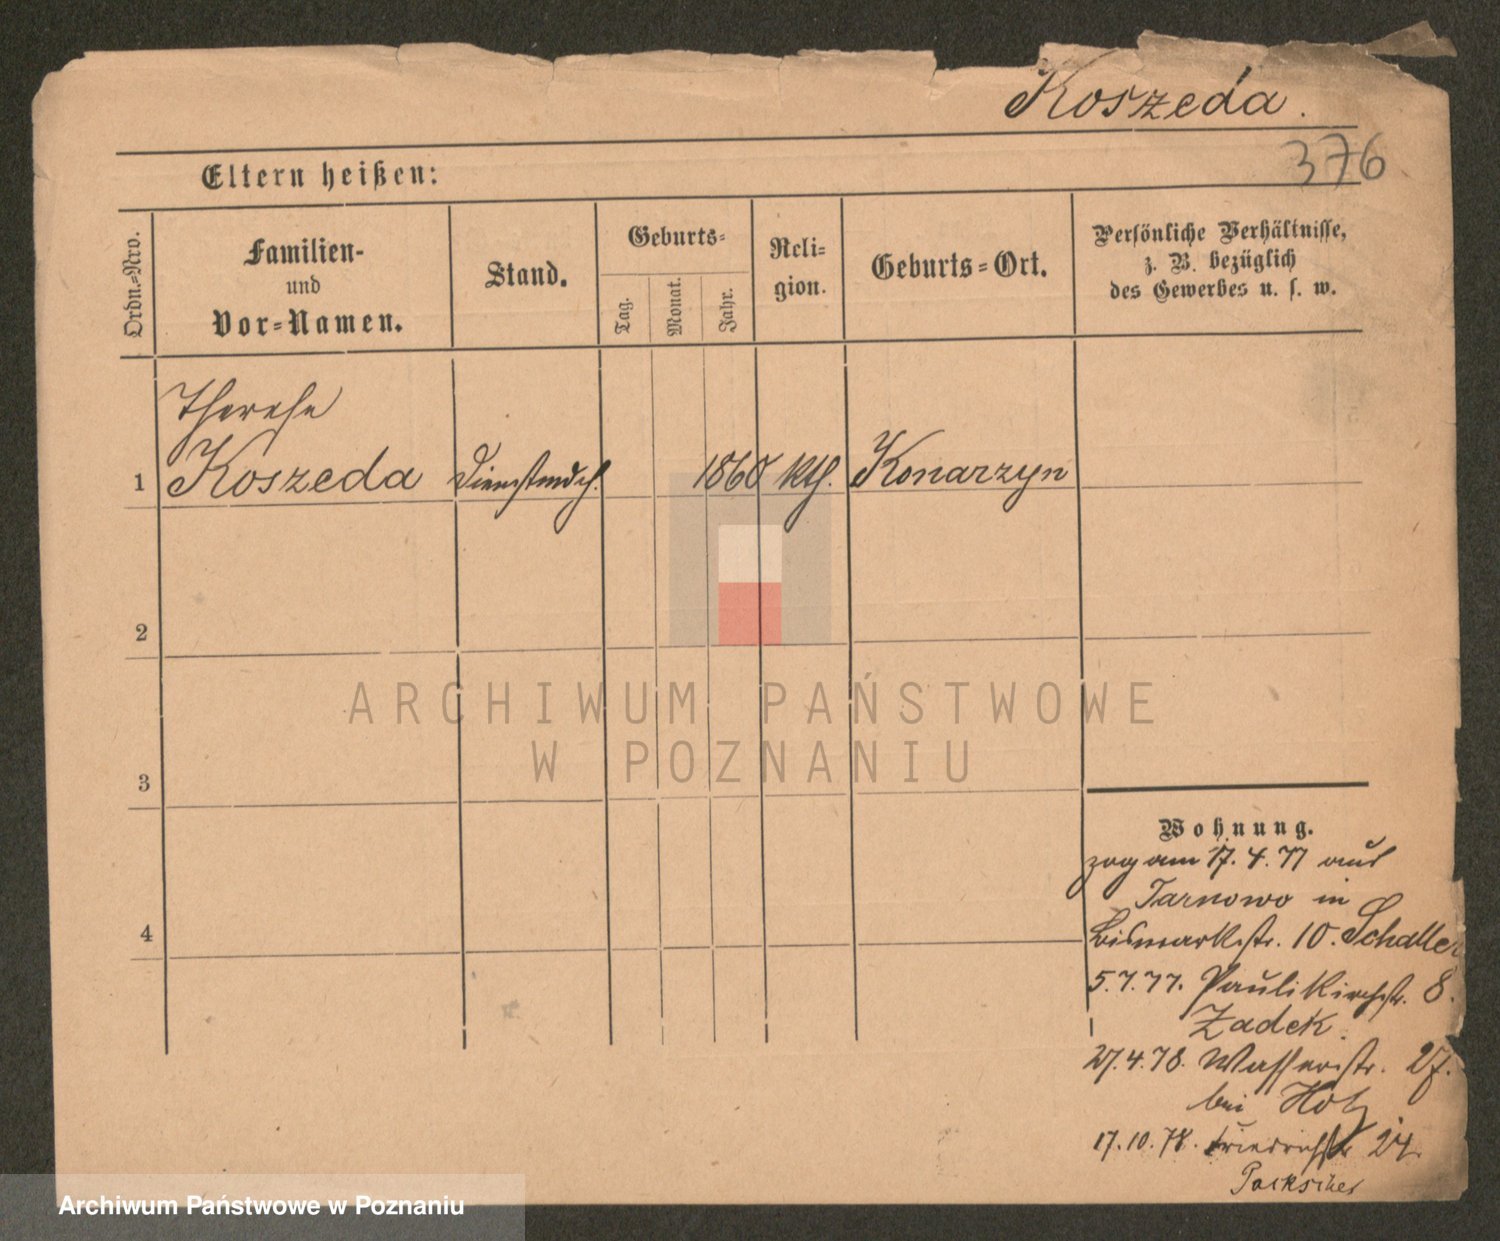 Koszeda.
376
Eltern heißen:
Ordn.=Nro.
Familien-
und
Vor=Namen.
Stand.
Geburts=
Tag.
Monat.
Jahr.
Reli=
gion.
Geburts=Ort.
Persönliche Verhältnisse,
z. B. bezüglich
des Gewerbes u. s. w.
Therese
1 Koszeda Dienstmdch. 1860 kth. Konarzyn
2
3
4
Wohnung.
zog am 17. 4. 77 aus
Tarnowo in
Bismarkstr. 10. Schaller
5. 7. 77. Paulikirchstr. 8.
Zadek.
27. 4. 78. Wasserstr. 27.
bei
17. 10. 78. Friedrichstr 24.
ARCHIWUM PAŃSTWOWE
W POZNANIU
Archiwum Państwowe w Poznaniu